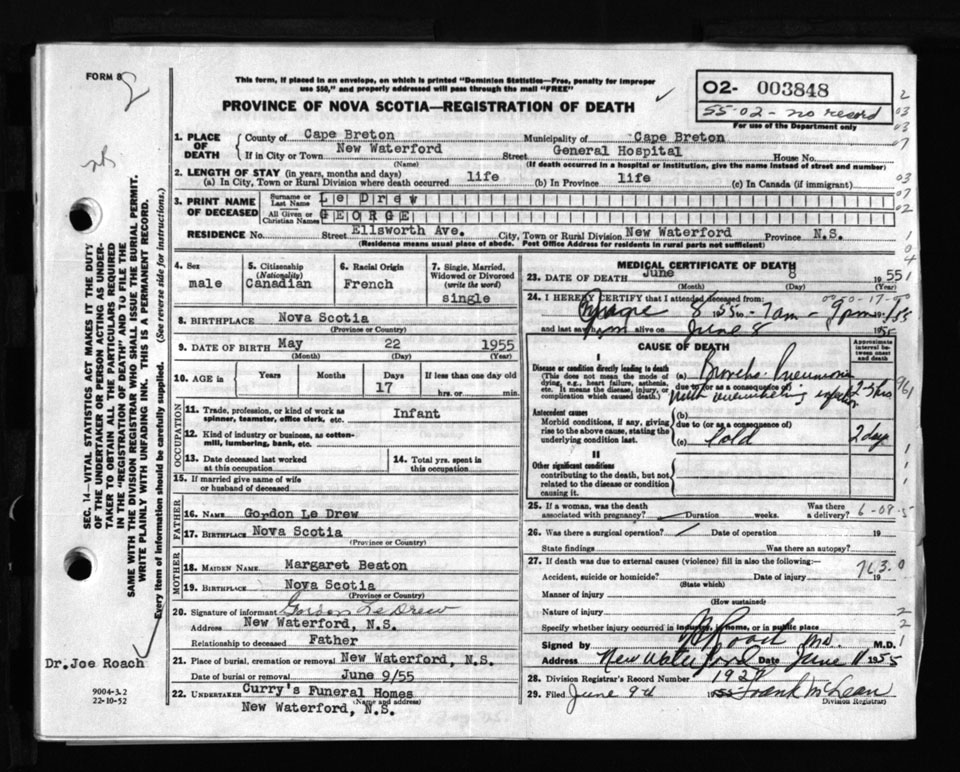 FORM 8
2
This form, if placed in an envelope, on which is printed "Dominion Statistics—Free, penalty for improper
use $50," and properly addressed will pass through the mail "FREE"
PROVINCE OF NOVA SCOTIA—REGISTRATION OF DEATH
O2- 003848
55-02-no record
For use of the Department only
SEC. 14—VITAL STATISTICS ACT MAKES IT THE DUTY
OF THE UNDERTAKER OR PERSON ACTING AS UNDER-
TAKER TO OBTAIN ALL THE PARTICULARS REQUIRED
IN THE "REGISTRATION OF DEATH" AND TO FILE THE
SAME WITH THE DIVISION REGISTRAR WHO SHALL ISSUE THE BURIAL PERMIT.
WRITE PLAINLY WITH UNFADING INK. THIS IS A PERMANENT RECORD.
Every item of information should be carefully supplied. (See reverse side for instructions.)
1. PLACE OF DEATH
County of Cape Breton Municipality of Cape Breton
If in City or Town New Waterford Street General Hospital House No.
(Name) (If death occurred in a hospital or institution, give the name instead of street and number)
2. LENGTH OF STAY (in years, months and days)
(a) In City, Town or Rural Division where death occurred life (b) In Province life (c) In Canada (if immigrant)
3. PRINT NAME OF DECEASED
Surname or Last Name Le Drew
All Given or Christian Names GEORGE
RESIDENCE No. Street Ellsworth Ave. City, Town or Rural Division New Waterford Province N.S.
(Residence means usual place of abode. Post Office Address for residents in rural parts not sufficient)
4. Sex
male
5. Citizenship
(Nationality)
Canadian
6. Racial Origin
French
7. Single, Married,
Widowed or Divorced
(write the word)
single
8. BIRTHPLACE Nova Scotia
(Province or Country)
9. DATE OF BIRTH May 22 1955
(Month) (Day) (Year)
10. AGE in Years Months Days If less than one day old
17 hrs. or min.
OCCUPATION
11. Trade, profession, or kind of work as
spinner, teamster, office clerk, etc. Infant
12. Kind of industry or business, as cotton-
mill, lumbering, bank, etc.
13. Date deceased last worked
at this occupation
14. Total yrs. spent in
this occupation
15. If married give name of wife
or husband of deceased
FATHER
16. NAME Gordon Le Drew
17. BIRTHPLACE Nova Scotia
(Province or Country)
MOTHER
18. MAIDEN NAME Margaret Beaton
19. BIRTHPLACE Nova Scotia
(Province or Country)
20. Signature of informant Gordon Le Drew
Address New Waterford, N.S.
Relationship to deceased Father
21. Place of burial, cremation or removal New Waterford, N.S.
Date of burial or removal June 9/55
22. UNDERTAKER Curry's Funeral Homes
(Name and address)
New Waterford, N.S.
Dr. Joe Roach
9004-3.2
22-10-52
MEDICAL CERTIFICATE OF DEATH
23. DATE OF DEATH June 8 1955
(Month) (Day) (Year)
24. I HEREBY CERTIFY that I attended deceased from:
8 1955 to 7am - 9pm 1955
and last saw him alive on June 8 1955
CAUSE OF DEATH
Approximate
interval be-
tween onset
and death
I
Disease or condition directly leading to death
(This does not mean the mode of
dying, e.g., heart failure, asthenia,
etc. It means the disease, injury, or
complication which caused death.)
(a) Broncho-Pneumonia
due to (or as a consequence of)
with overwhelming infection 2-3 hrs
Antecedent causes
Morbid conditions, if any, giving
rise to the above cause, stating the
underlying condition last.
(b)
due to (or as a consequence of)
(c) Cold 2 days
II
Other significant conditions
contributing to the death, but not
related to the disease or condition
causing it.
25. If a woman, was the death
associated with pregnancy? Duration weeks. Was there a delivery?
6-08-5
26. Was there a surgical operation? Date of operation 19
State findings Was there an autopsy?
27. If death was due to external causes (violence) fill in also the following:
763.0
Accident, suicide or homicide? Date of injury 19
(State which)
Manner of injury
(How sustained)
Nature of injury
Specify whether injury occurred in industry, in home, or in public place
Signed by Roach M.D. M.D.
Address New Waterford Date June 11 1955
28. Division Registrar's Record Number 1927
29. Filed June 9th 1955 Frank McLean
Division Registrar)